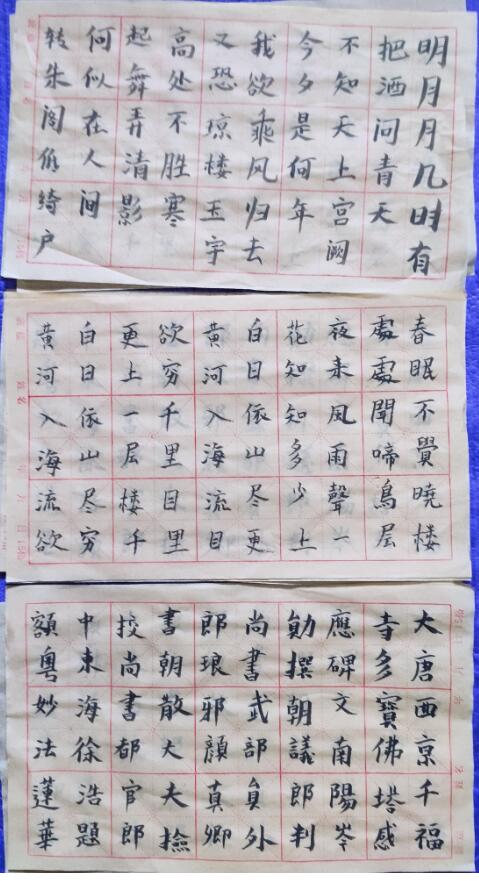 明月月几时有
把酒问青天
不知天上宫阙
今夕是何年
我欲乘风归去
又恐琼楼玉宇
高处不胜寒
起舞弄清影
何似在人间
转朱阁低绮户
春眠不覺曉楼
處處聞啼鳥层
夜来风雨聲一
花知知多少上
白日依山尽更
黄河入海流目
欲穷千里目里
更上一层楼千
白日依山尽穷
黄河入海流欲
大唐西京千福
寺多寶佛塔感
應碑文南陽岑
勛撰朝議郎判
尚書武部員外
郎琅邪顔真卿
書朝散大夫撿
挍尚書都官郎
中東海徐浩題
額粤妙法蓮華